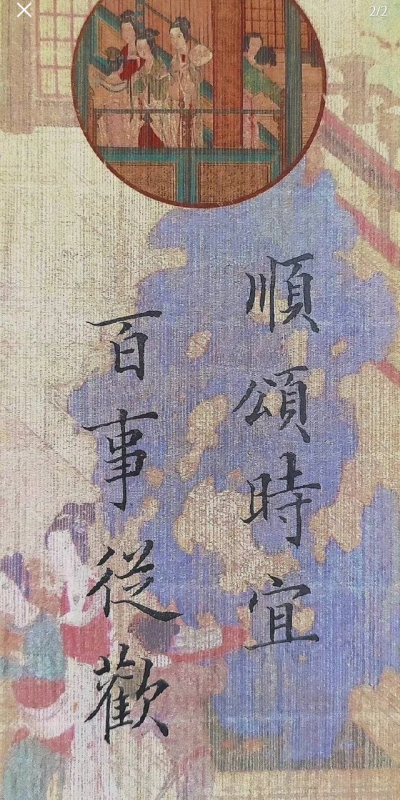 順頌時宜
百事從歡
2/2